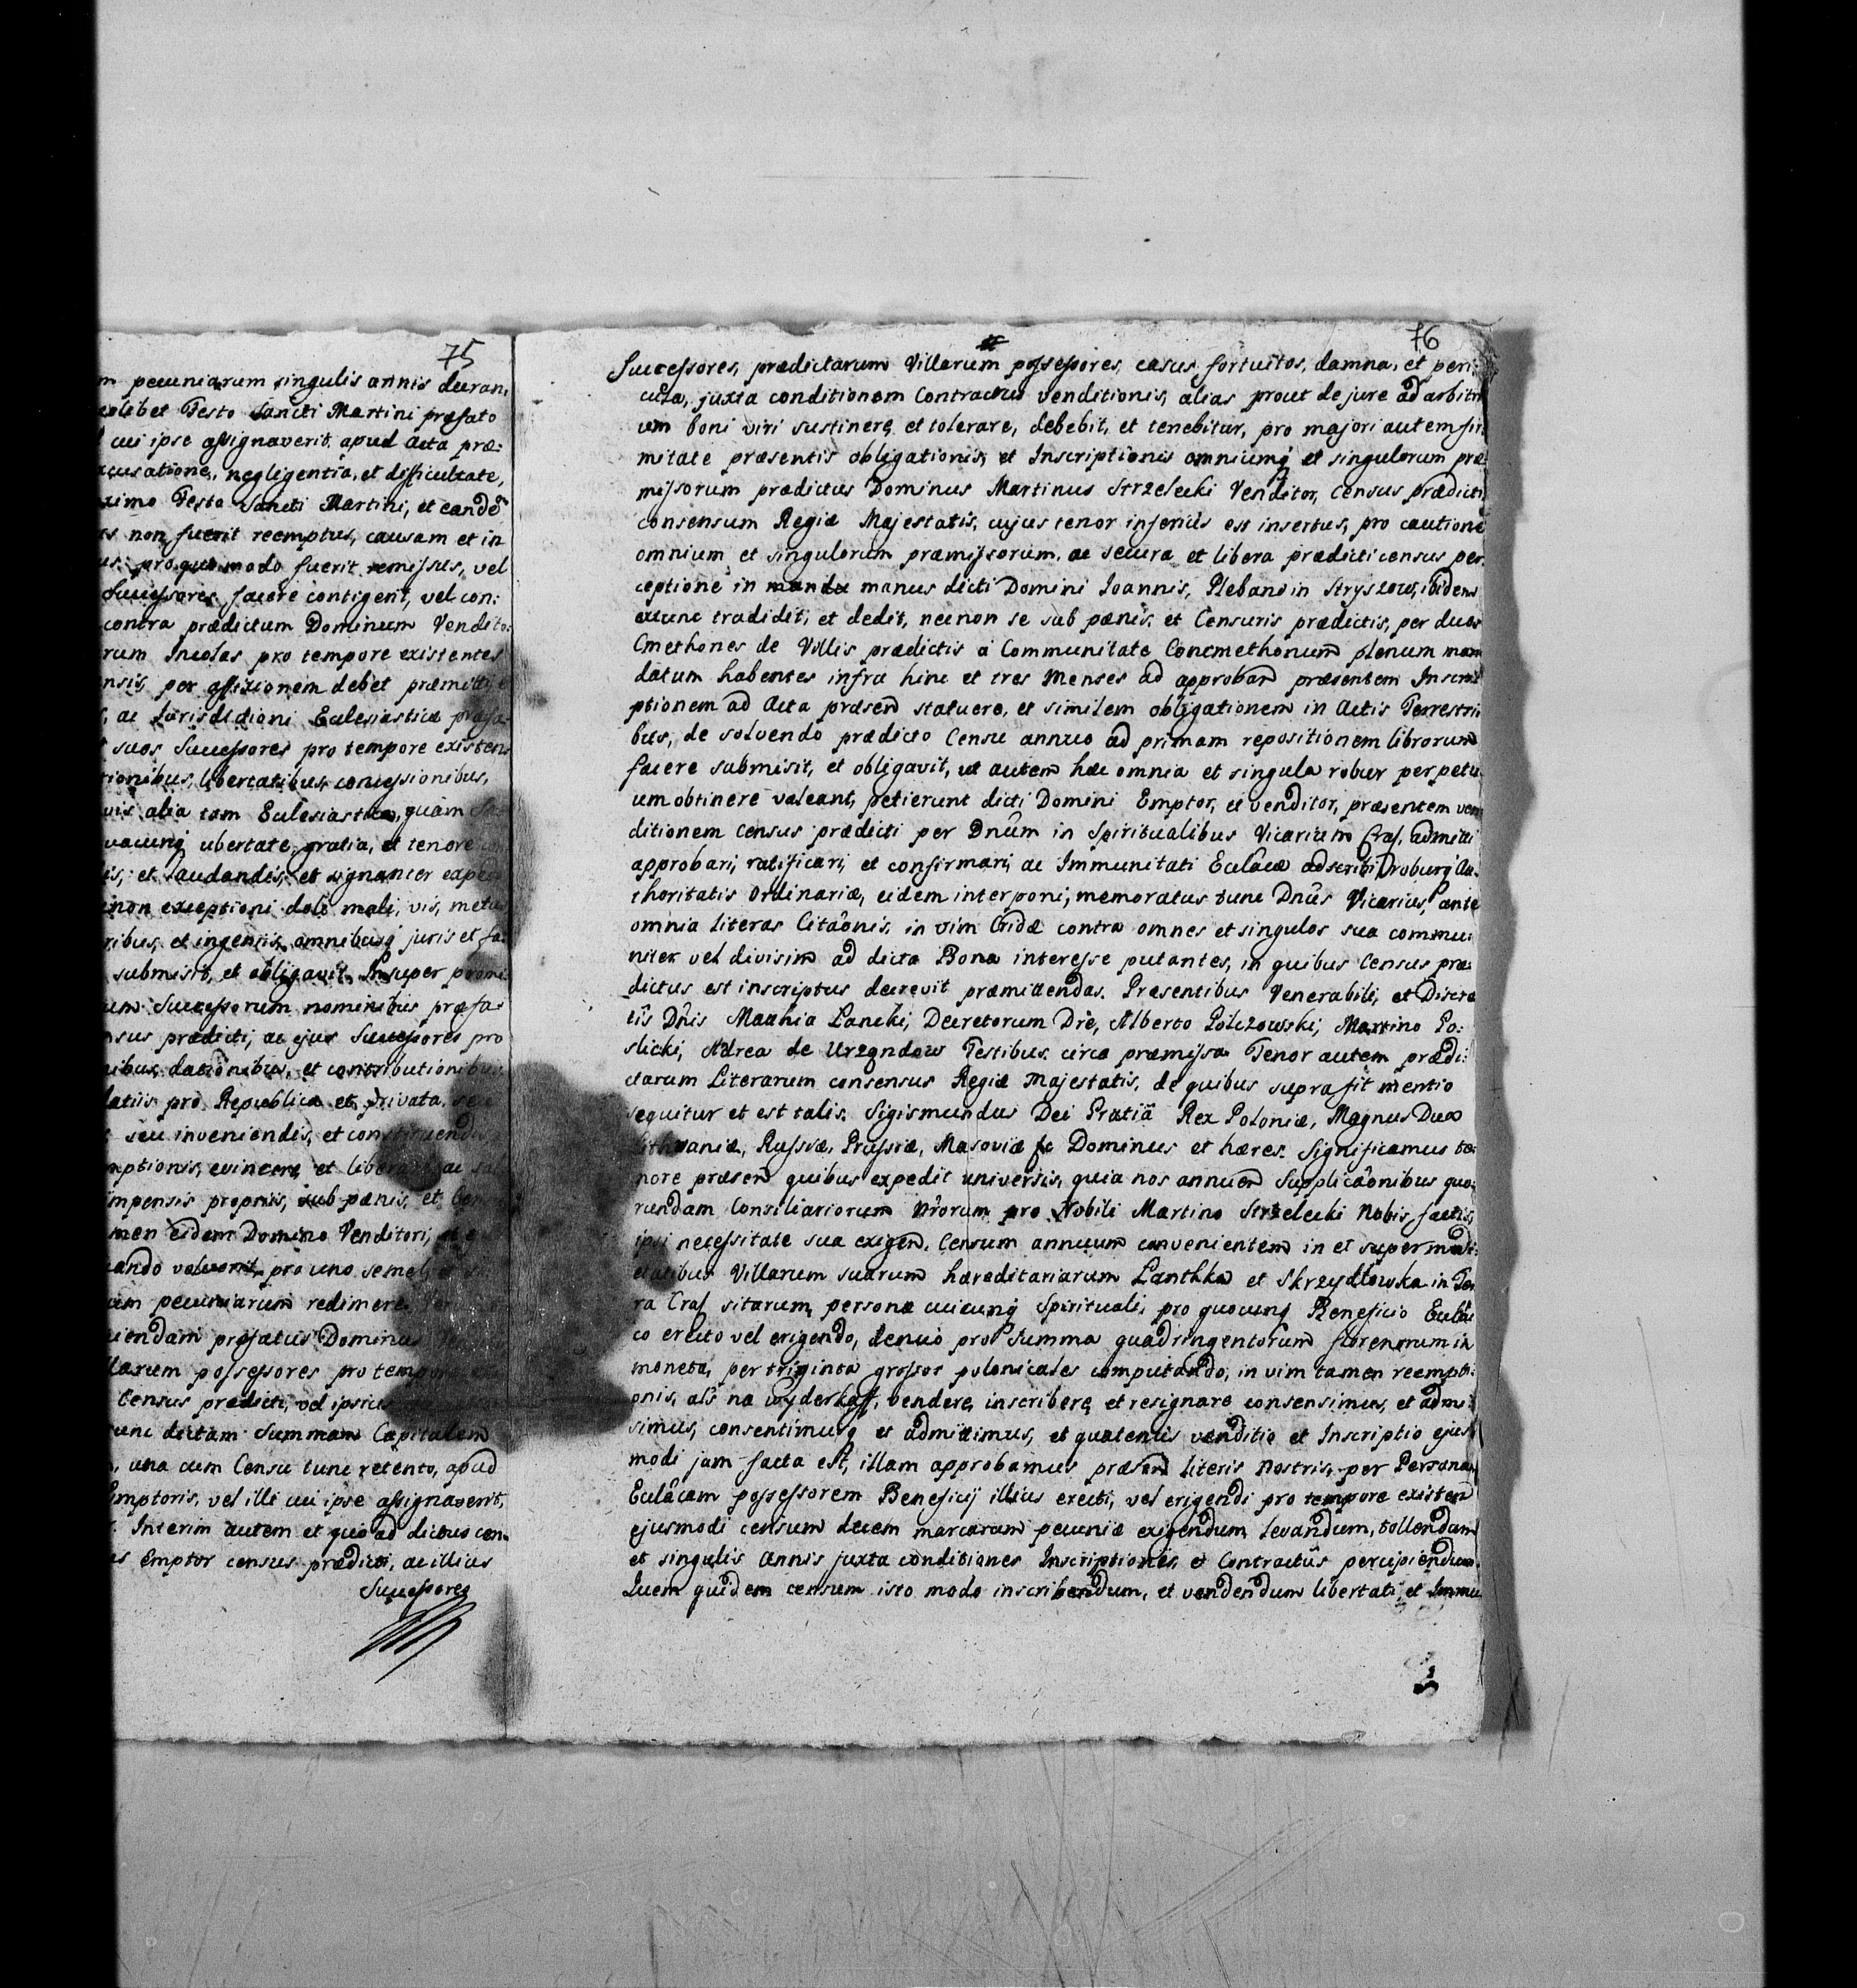 75
m pecuniarum singulis annis duran,
Festo Sancti Martini præfato
cui ipse assignaverit, apud Acta præ:
negligentia, et difficultate,
Festo Sancti Martini, et eandē
non fuerit reemptus, causam et in
quo modo fuerit remissus, vel
Successores facere contigerit, vel con:
contra prædictum Dominum Vendito:
rum Incolas pro tempore existentes
per affixionem debet
ac Jurisdictioni Ecclesiasticæ
suos Successores pro tempore existen
libertatibus, concessionibus,
alia tam Ecclesiastica, quàm
ubertate, gratia, et tenore
et laudandis, et signanter
exceptioni doli mali, vis, metus
et ingeniis, omnibusq juris et fa:
submisit, et obligavit. Insuper
Successorum nominibus præfa:
prædicti, ac ejus Successores pro
dationibus, et contributionibus
pro Republica et privata, seu
seu inveniendis, et constituendis
evincere, et liberare, ac
impensis propriis, sub pænis, et
eidem Domino Venditori,
pro uno semel,
pecuniarum redimere.
præfatus Dominus
possessores pro tempore
Census prædicti, vel ipsius
dictam Summam Capitalem
una cum Censu tunc retento, apud
Emptoris, vel illi cui ipse assignaverit,
Interim autem et quo ad dictus cen:
Emptor census prædicti, ac illius
Successores
76
Successores, prædictarum Villarum possessores, casus fortuitos, damna, et peri:
cula, juxta conditionem Contractus venditionis, alias prout de jure ad arbitri
um boni viri sustinere, et tolerare, debebit, et tenebitur, pro majori autem fir:
mitate præsentis obligationis, et Inscriptionis omniumq et singulorum præ
missorum prædictus Dominus Martinus Strzelecki Venditor, Census prædicti
consensum Regiæ Majestatis, cujus tenor inferiùs est insertus, pro cautione
omnium et singulorum præmissorum, ac secura et libera prædicti census per
ceptione in manus dicti Domini Ioannis, Plebano in Stryszow, ibidem
extunc tradidit, et dedit, necnon se sub pænis, et Censuris prædictis, per duos
Cmethones de Villis prædictis à Communitate Concmethonum plenum man
datum habentes infra hinc et tres Menses ad approband præsentem Inscri
ptionem ad Acta præsend statuere, et similem obligationem in Actis Terrestri
bus, de solvendo prædicto Censu annuo ad primam repositionem librorum
facere submisit, et obligavit, ut autem hæc omnia et singula robur perpetu
um obtinere valeant, petierunt dicti Domini Emptor, et venditor, præsentem ven
ditionem Census prædicti per Dnûm in Spiritualibus Vicarium Crac, admitti
approbari, ratificari, et confirmari, ac Immunitati Ecclâcæ adscribi, roburq Au
thoritatis Ordinariæ, eidem interponi, memoratus tunc Dnûs Vicarius, ante
omnia literas Citâonis, in vim Cridæ contra omnes et singulos sua commu:
niter vel divisim ad dicta Bona interesse putantes, in quibus Census præ:
dictus est inscriptus decrevit præmittendas. Præsentibus Venerabili, et Discre
tis Dnîs Mathia Lancki, Decretorum Dre, Alberto Polczowski, Martino Po:
slicki, Adrea de Urzendow Testibus circa præmissa. Tenor autem prædi:
ctarum Literarum consensus Regiæ Majestatis, de quibus supra fit mentio
sequitur et est talis. Sigismundus Dei Gratiâ Rex Poloniæ, Magnus Dux
Lithvaniæ, Russiæ, Prussiæ, Masoviæ Dominus et hæres. Significamus te:
nore præsend quibus expedit universis, quia nos annuend Supplicâonibus quo:
rundam Consiliariorum Nrorum pro Nobili Martino Strzelecki Nobis factis,
ipsi necessitate sua exigen. Censum annuum convenientem in et super medi:
etatibus Villarum suarum hæreditariarum Lanthka et Skrzydlowska in Ter
ra Crac sitarum, personæ cuicunq Spirituali, pro quocunq Beneficio Ecclâi
co erecto vel erigendo, denuo pro Summa quadringentorum florenorum in
moneta, per triginta grossos polonicales computando, in vim tamen reempti:
onis, alîs na wyderkaff, vendere, inscribere, et resignare consensimus, et admi:
simus, consentimusq et admittimus, et quatenus venditio et Inscriptio ejus:
modi jam facta est, illam approbamus præsend literis Nostris, per Personam
Ecclâcam possessorem Beneficij illius erecti, vel erigendi pro tempore existen
ejusmodi censum decem marcarum pecuniæ exigendum, levandum, tollendum
et singulis Annis juxta conditiones Inscriptionis, et Contractûs percipiendum.
Quem quidem censum isto modo inscribendum, et vendendum libertati, et Immu